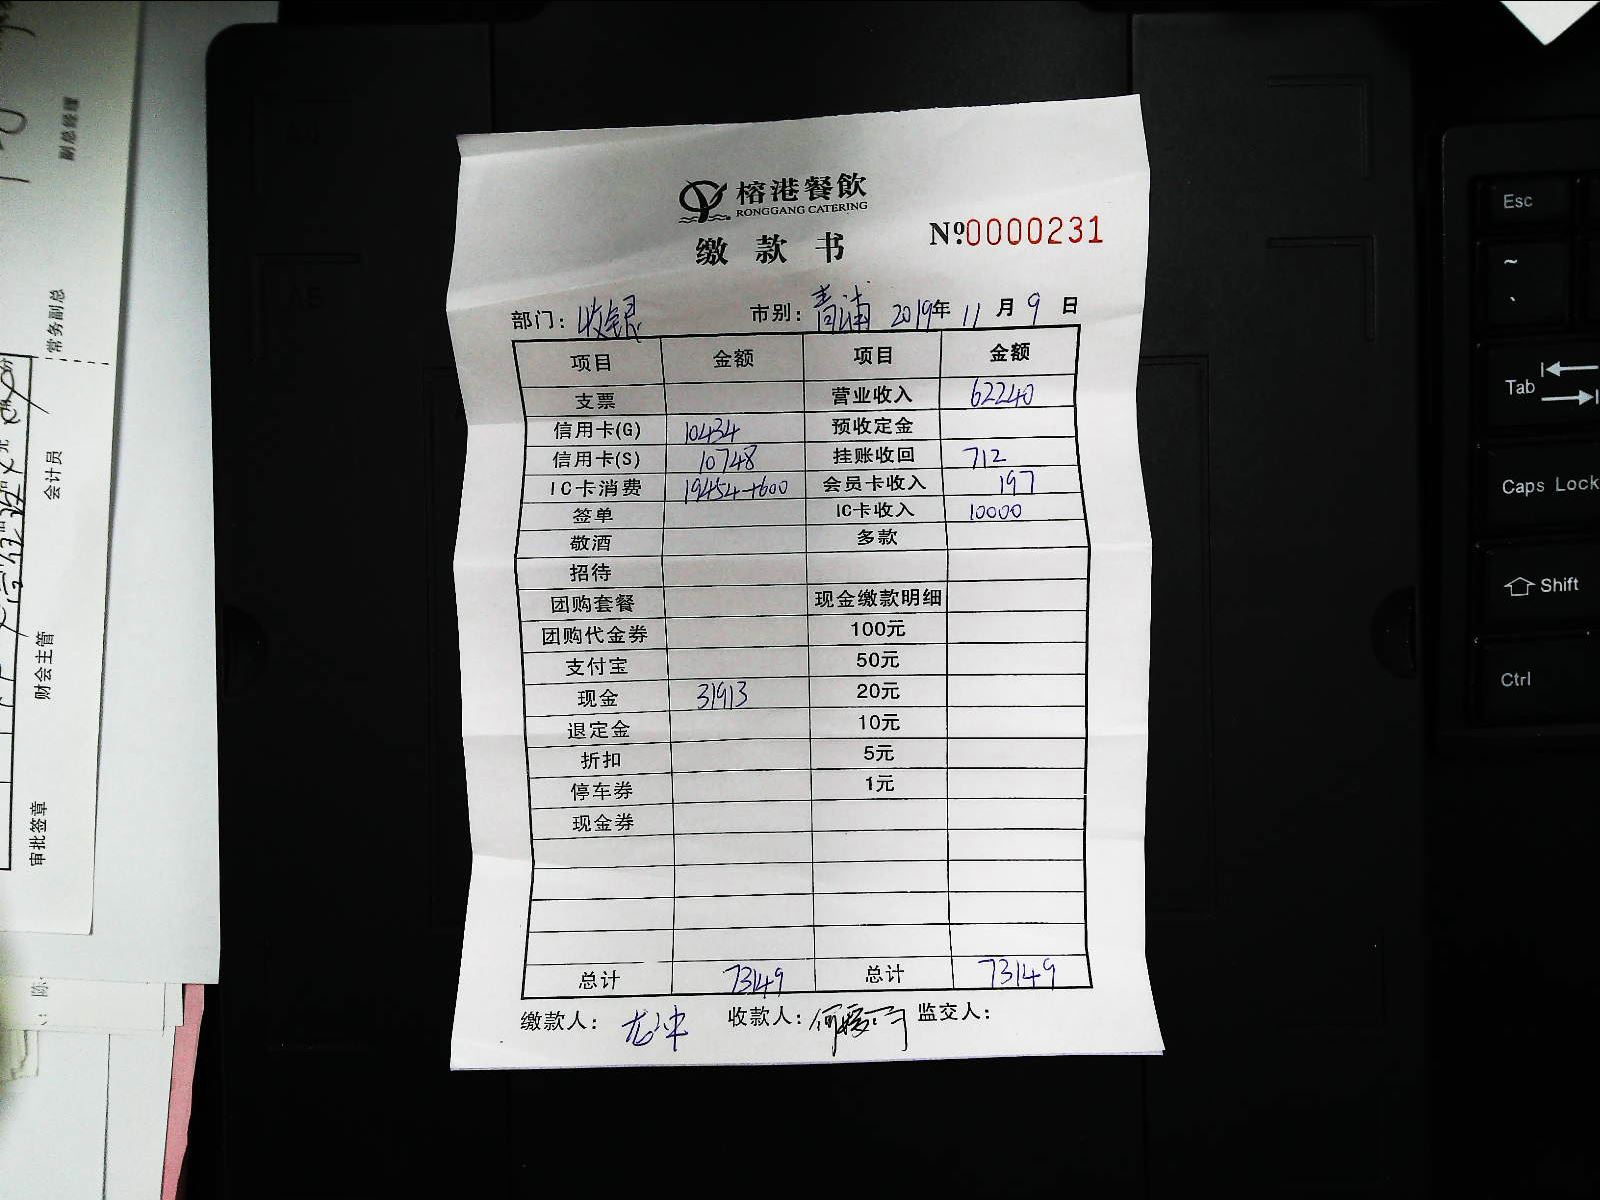 榕港餐飲
RONGGANG CATERING
缴款书
№0000231
部门：收银 市别：青浦 2019年11月9日
项目 金额 项目 金额
支票 营业收入 62240
信用卡(G) 10434 预收定金
信用卡(S) 10748 挂账收回 712
IC卡消费 19454+600 会员卡收入 197
签单 IC卡收入 10000
敬酒 多款
招待
团购套餐 现金缴款明细
团购代金券 100元
支付宝 50元
现金 31913 20元
退定金 10元
折扣 5元
停车券 1元
现金券
总计 73149 总计 73149
缴款人： 收款人： 监交人：
副总经理
常务副总
会计员
财会主管
审批签章
Esc
~
Tab
Caps Lock
Shift
Ctrl